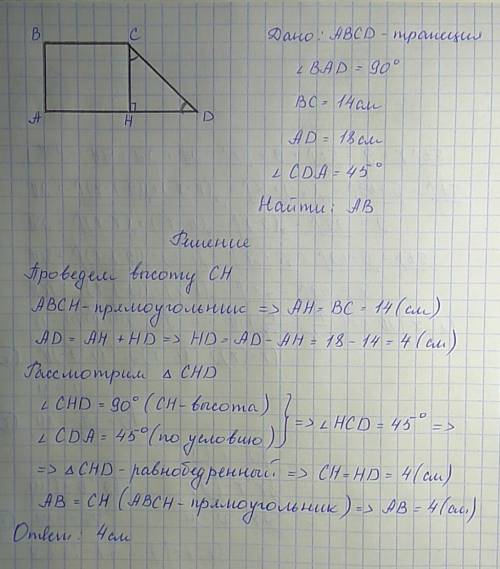 B C
A H D
Дано: ABCD - трапеция
∠BAD = 90°
BC = 14см
AD = 18см
∠CDA = 45°
Найти: AB
Решение
Проведем высоту CH
ABCH - прямоугольник => AH = BC = 14 (см)
AD = AH + HD => HD = AD - AH = 18 - 14 = 4 (см)
Рассмотрим △ CHD
∠CHD = 90° (CH - высота)
∠CDA = 45° (по условию) } => ∠HCD = 45° =>
=> △CHD - равнобедренный => CH = HD = 4 (см)
AB = CH (ABCH - прямоугольник) => AB = 4 (см)
Ответ: 4см